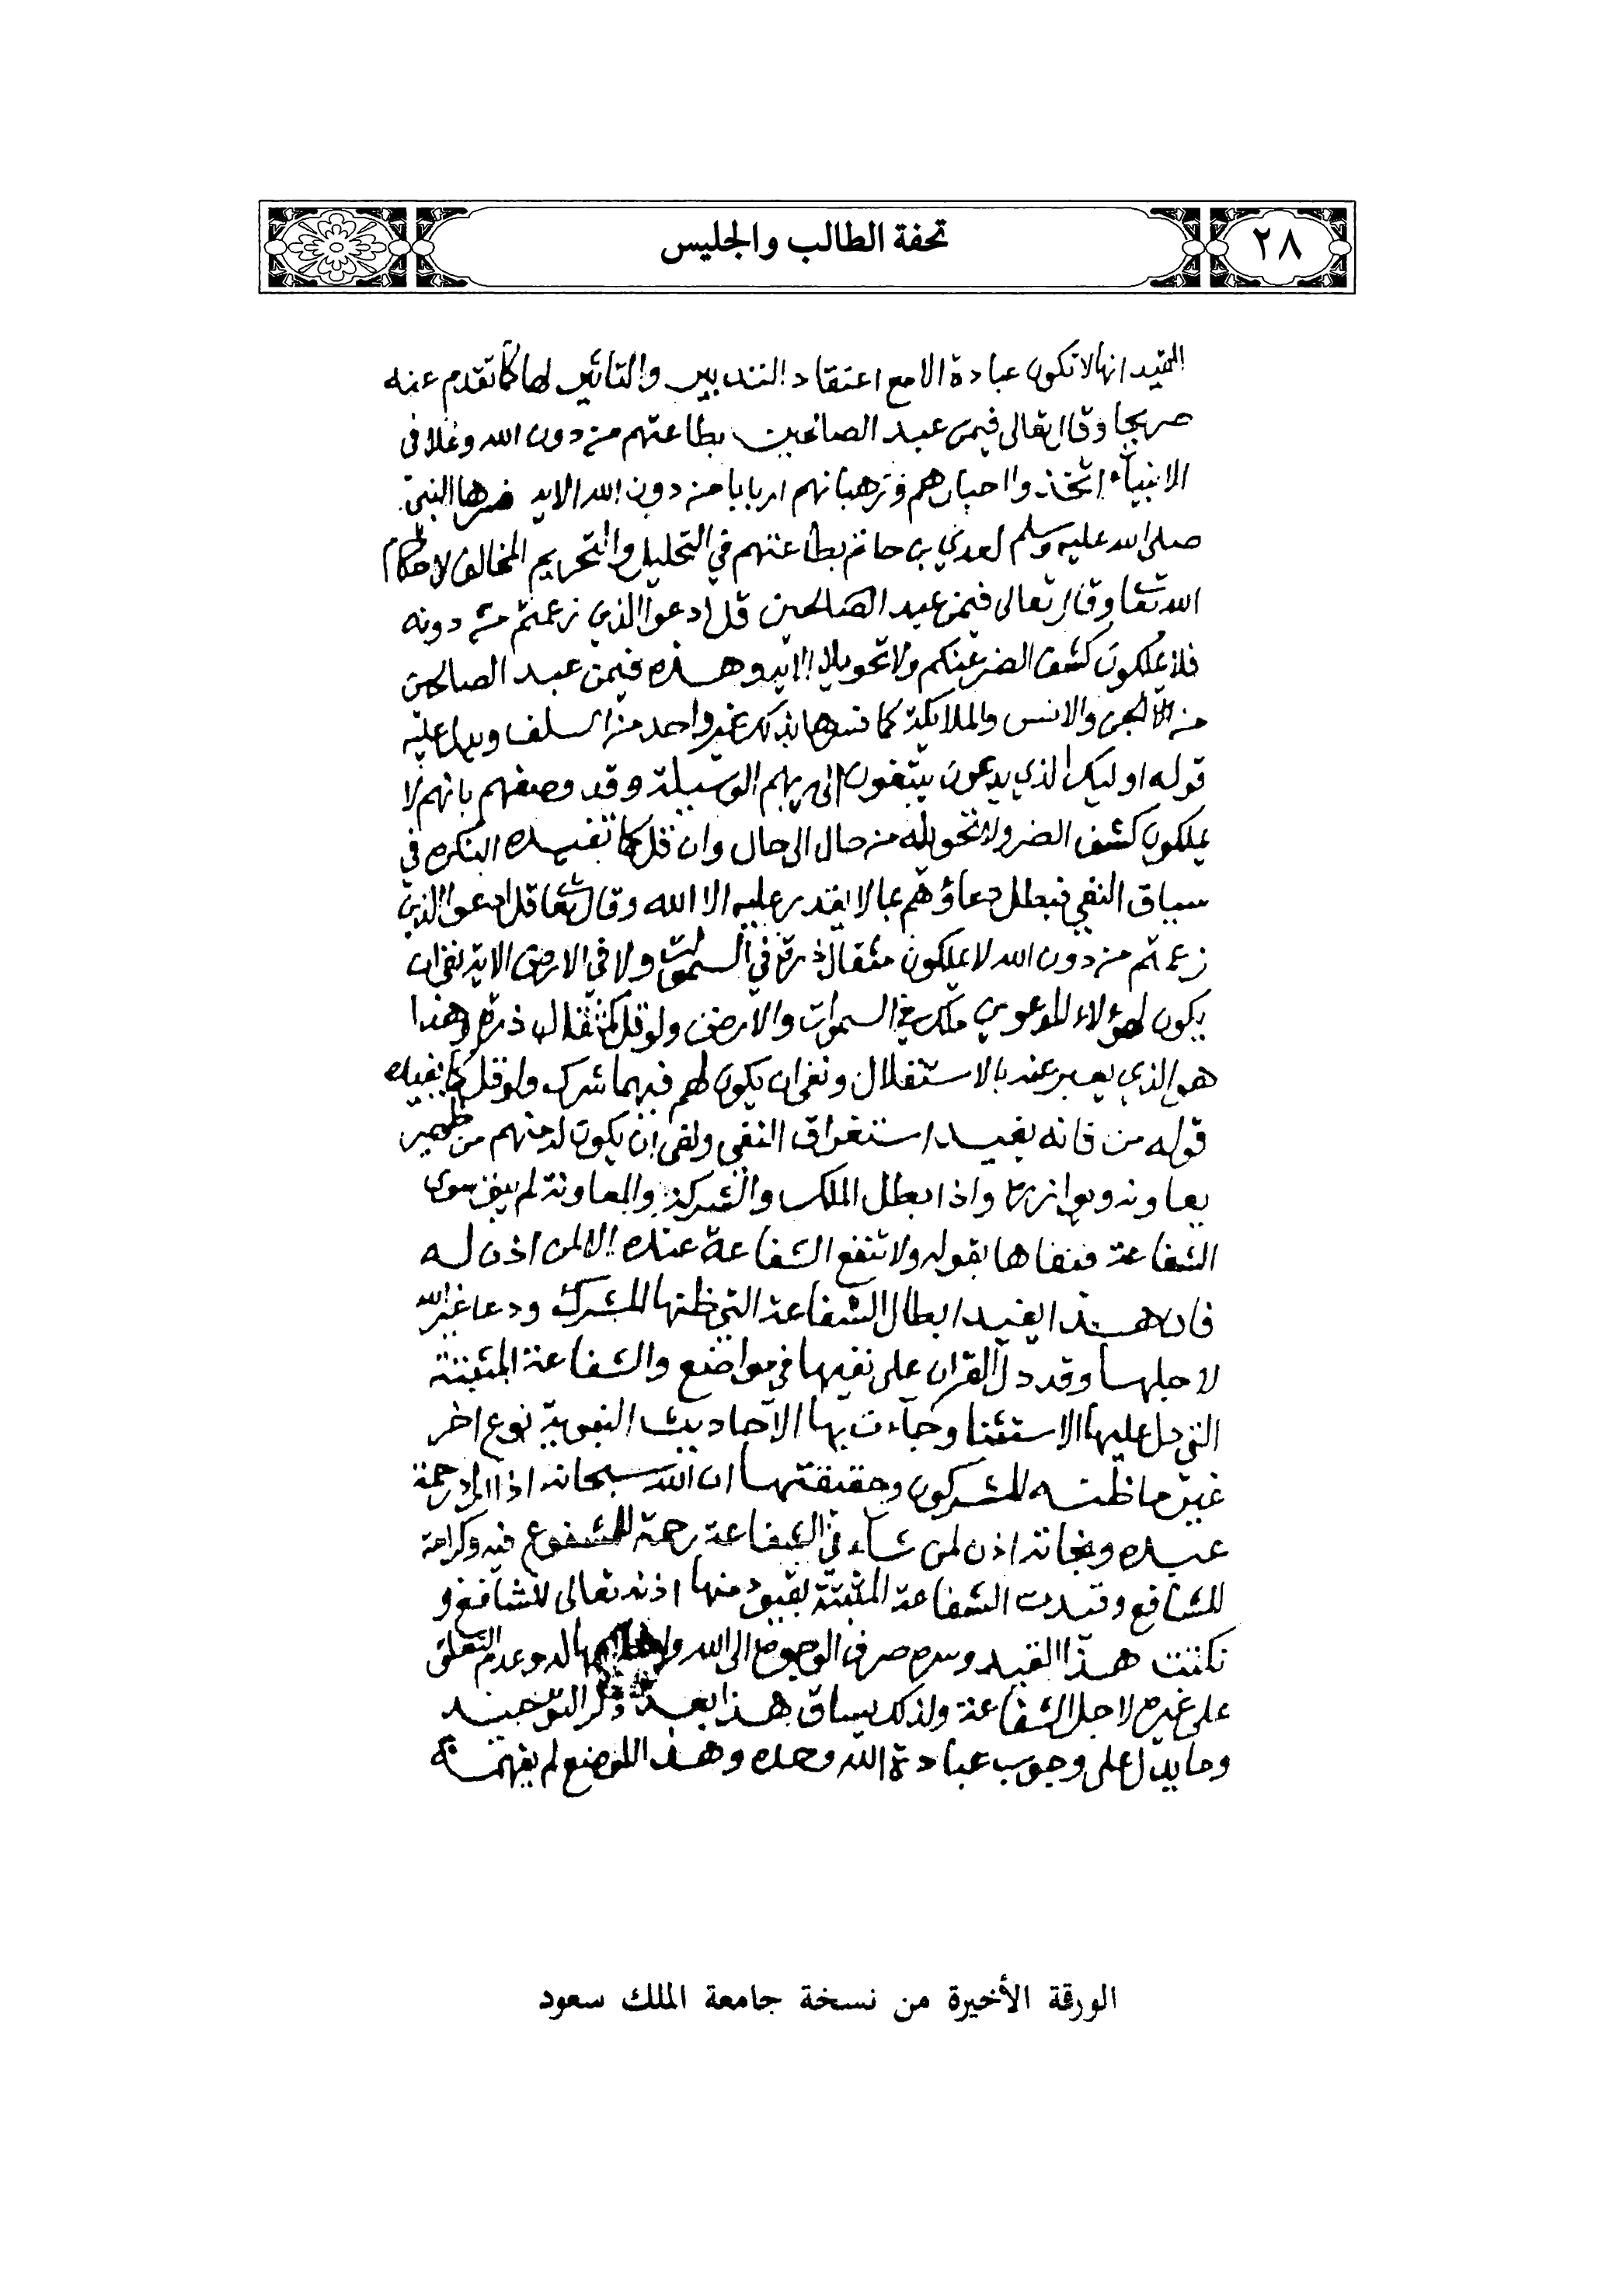 ٢٨
تحفة الطالب والجليس
انها لا تكون عبادة الا مع اعتقاد التدبير والتاثير لها كما تقدم عنه
صريحا وقال تعالى فيمن عبد الصالحين بطاعتهم من دون الله وغلا في
الانبياء اتخذوا احبارهم ورهبانهم اربابا من دون الله الاية فسرها النبي
صلى الله عليه وسلم لعدي بن حاتم بطاعتهم في التحليل والتحريم المخالف لاحكام
الله تعا وقال تعالى فيمن عبد الصالحين قل ادعوا الذين زعمتم من دونه
فلا يملكون كشف الضر عنكم ولا تحويلا الاية وهذه فيمن عبد الصالحين
من الجن والانس والملائكة كما فسرها بذلك غير واحد من السلف ويدل عليه
قوله اوليك الذين يدعون يبتغون الى ربهم الوسيلة وقد وصفهم بانهم لا
يملكون كشف الضر ولا تحويله من حال الى حال وان قل كما تفيده النكره في
سياق النفي فبطل دعاؤهم بما لا يقدر عليه الا الله وقال تعا قل ادعوا الذين
زعمتم من دون الله لا يملكون مثقال ذرة في السموات ولا في الارض الاية نفى ان
يكون لهؤلاء المدعوين ملك في السموات والارض ولو قل كمثقال ذرة وهذا
هو الذي يعبر عنه بالاستقلال ونفى ان يكون لهم فيهما شرك ولو قل كما يفيده
قوله من فانه يفيد استغراق النفى ونفى ان يكون له منهم من ظهير
يعاونه ويوازره واذا بطل الملك والشركة والمعاونة لم يبق سوى
الشفاعة فنفاها بقوله ولا تنفع الشفاعة عنده الا لمن اذن له
فان هذا يفيد ابطال الشفاعة التي ظنها المشرك ودعا غير الله
لاجلها وقد دل القران على نفيها في مواضع والشفاعة المثبتة
التي دل عليها الاستثنا وجاءت بها الاحاديث النبوية نوع اخر
غير ما ظنه المشركون وحقيقتها ان الله سبحانه اذا اراد رحمة
عبده ونجاته اذن لمن شاء في الشفاعة رحمة للمشفوع فيه وكرامة
للشافع وقيدت الشفاعة المثبتة بقيود منها اذنه تعالى للشافع و
نكتت هذا القيد وسره صرف الوجوه الى الله له وعدم التعلق
على غيره لاجل الشفاعة ولذلك يساق هذا بعد ذكر التوحيد
وما يدل على وجوب عبادة الله وحده وهذا الموضع لم يفهمه
الورقة الأخيرة من نسخة جامعة الملك سعود